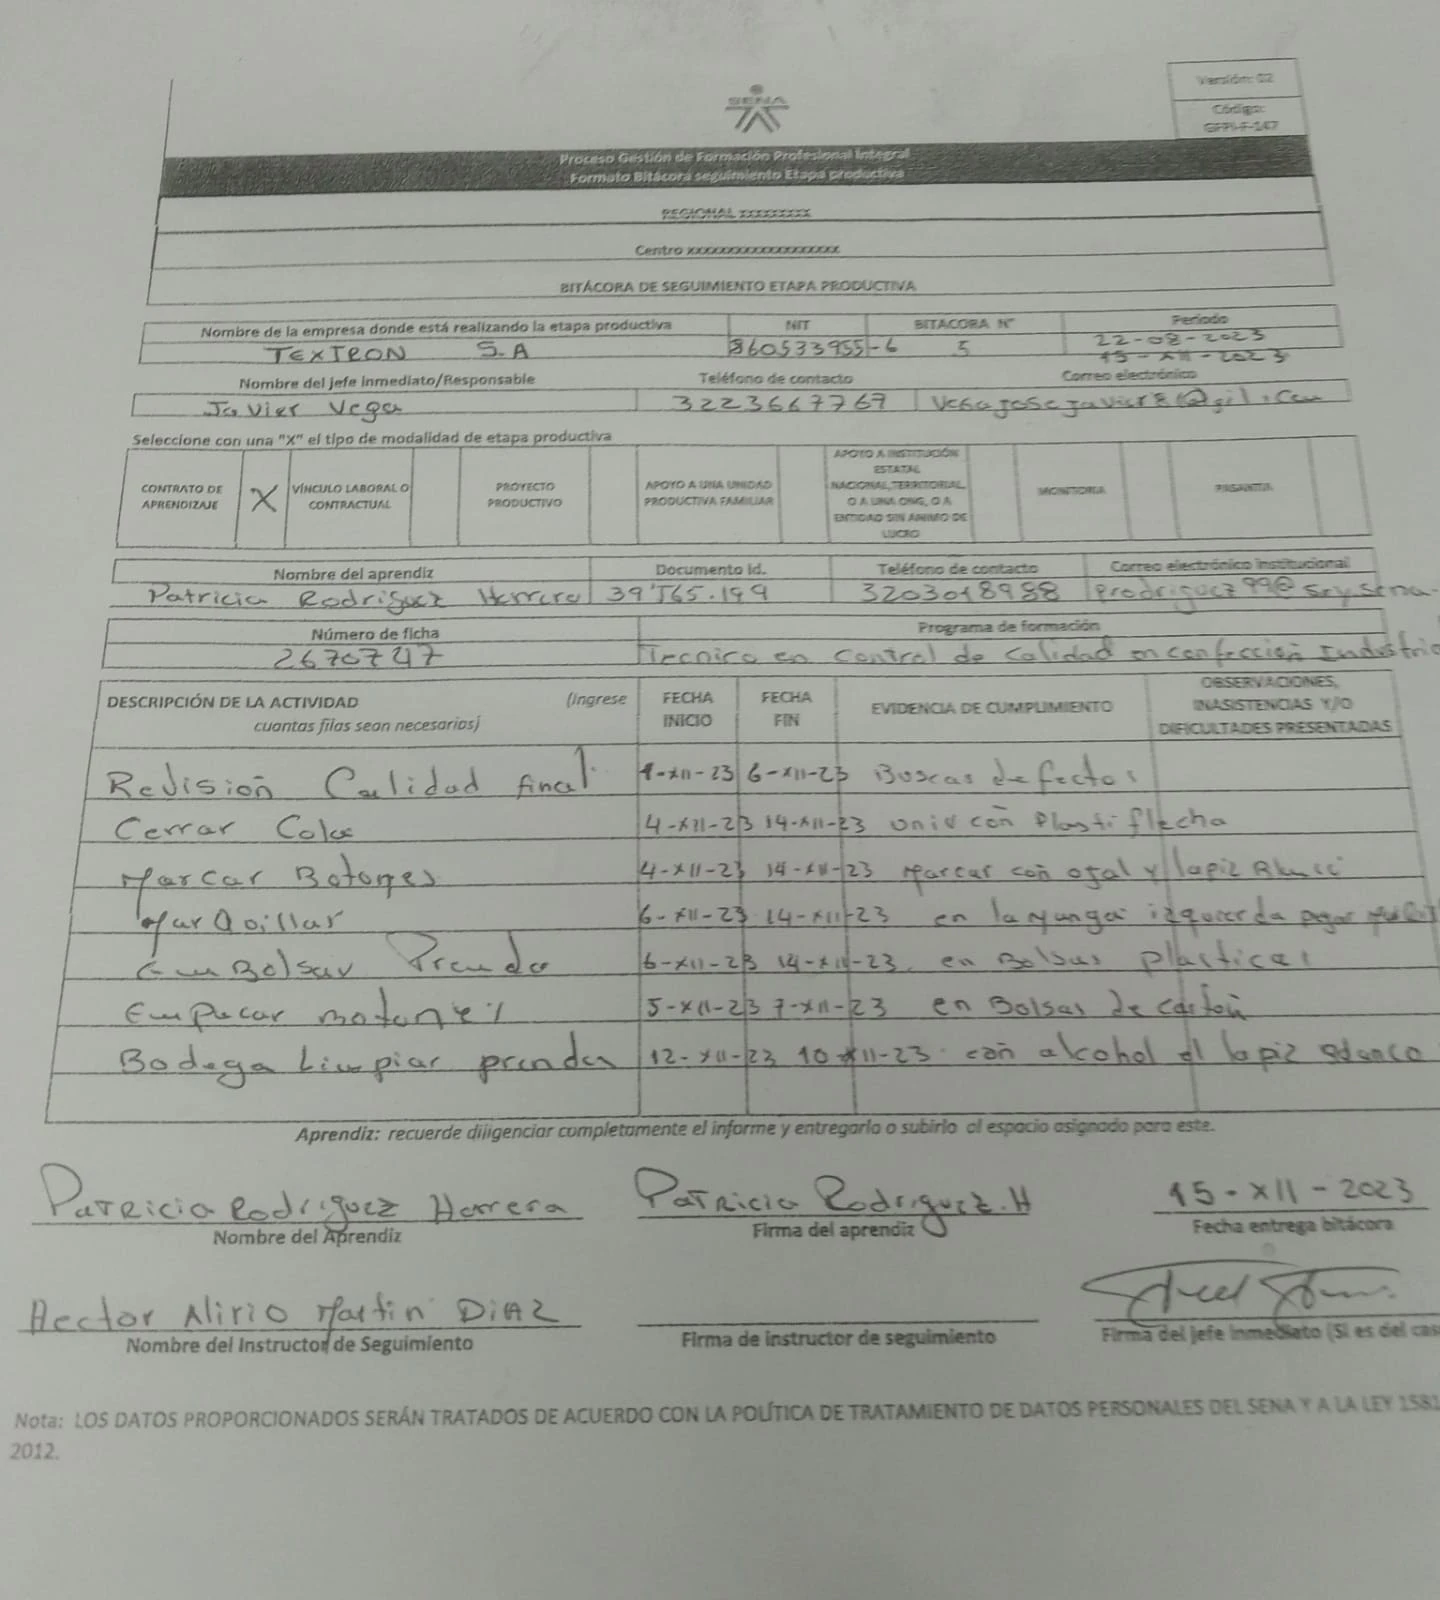 Versión: 02
Código:
GFPI-F-147
SENA
Proceso Gestión de Formación Profesional Integral
Formato Bitácora seguimiento Etapa productiva
REGIONAL xxxxxxxxx
Centro xxxxxxxxxxxxxxxxxxx
BITÁCORA DE SEGUIMIENTO ETAPA PRODUCTIVA
Nombre de la empresa donde está realizando la etapa productiva NIT BITACORA N° Periodo
TEXTRON S.A 860533955-6 5 22-08-2023
15-XII-2023
Nombre del jefe inmediato/Responsable Teléfono de contacto Correo electrónico
Javier Vega 3223667769
Seleccione con una "X" el tipo de modalidad de etapa productiva
CONTRATO DE APRENDIZAJE X VÍNCULO LABORAL O CONTRACTUAL PROYECTO PRODUCTIVO APOYO A UNA UNIDAD PRODUCTIVA FAMILIAR APOYO A INSTITUCIÓN ESTATAL NACIONAL, TERRITORIAL, O A UNA ONG, O A ENTIDAD SIN ANIMO DE LUCRO MONITORIA PASANTIA
Nombre del aprendiz Documento Id. Teléfono de contacto Correo electrónico institucional
Patricia Rodriguez Herrera 39'565.199 3203018988 prodriguez99@soy.sena.
Número de ficha Programa de formación
2670747 Tecnico en Control de Calidad en confección Industria
DESCRIPCIÓN DE LA ACTIVIDAD (Ingrese cuantas filas sean necesarias) FECHA INICIO FECHA FIN EVIDENCIA DE CUMPLIMIENTO OBSERVACIONES, INASISTENCIAS Y/O DIFICULTADES PRESENTADAS
Revisioñ Calidad final 1-XII-23 6-XII-23 Buscas defectos
Cerrar Cola 4-XII-23 14-XII-23 unir coñ Plastiflecha
Marcar Botones 4-XII-23 14-XII-23 Marcar coñ ojal y lapiz Blanco
Marquillar 6-XII-23 14-XII-23 en la manga izquierda pegar
Embolsar Prenda 6-XII-23 14-XII-23 en Bolsas plasticas
Empacar Botones 5-XII-23 7-XII-23 en Bolsas de cartoñ
Bodega Limpiar prenda 12-XII-23 10-XII-23 coñ alcohol el lapiz Blanco
Aprendiz: recuerde diligenciar completamente el informe y entregarlo o subirlo al espacio asignado para este.
Patricia Rodriguez Herrera Patricia Rodriguez.H 15-XII-2023
Nombre del Aprendiz Firma del aprendiz Fecha entrega bitácora
Hector Alirio Martin DiAZ
Nombre del Instructor de Seguimiento Firma de instructor de seguimiento Firma del jefe inmediato (Si es del cas
Nota: LOS DATOS PROPORCIONADOS SERÁN TRATADOS DE ACUERDO CON LA POLÍTICA DE TRATAMIENTO DE DATOS PERSONALES DEL SENA Y A LA LEY 1581
2012.